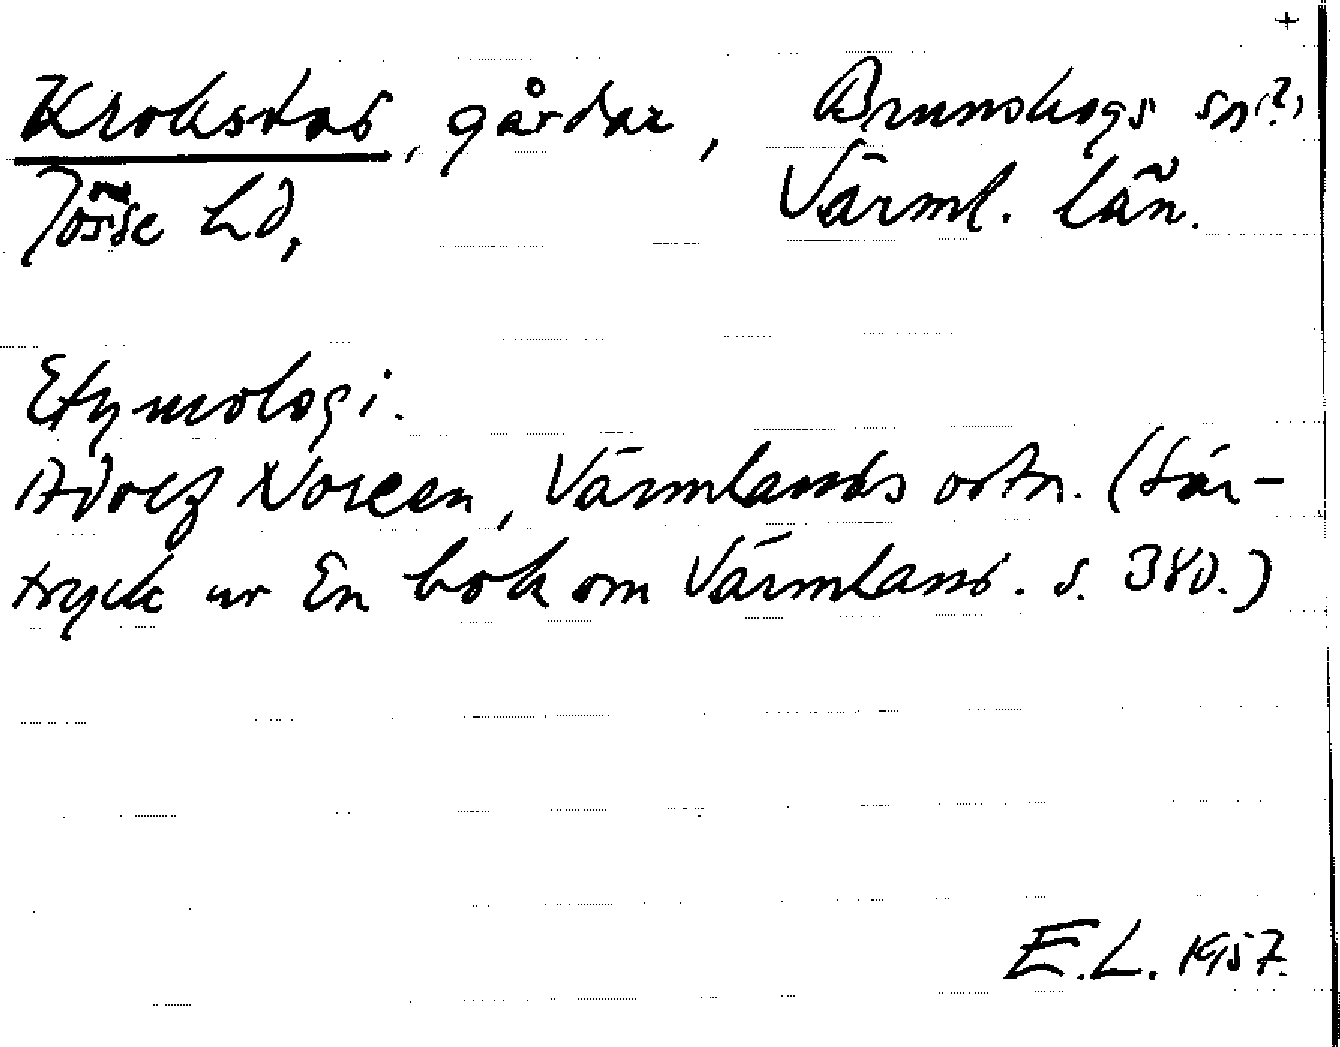 +
Krokstad, gårdar, Brunskogs sn(?)
Jösse hd, Värml. län.
Etymologi.
Adolf Noreen, Värmlands ortn. (Sär-
tryck ur En bok om Värmland. s. 380.)
E.L. 1957.